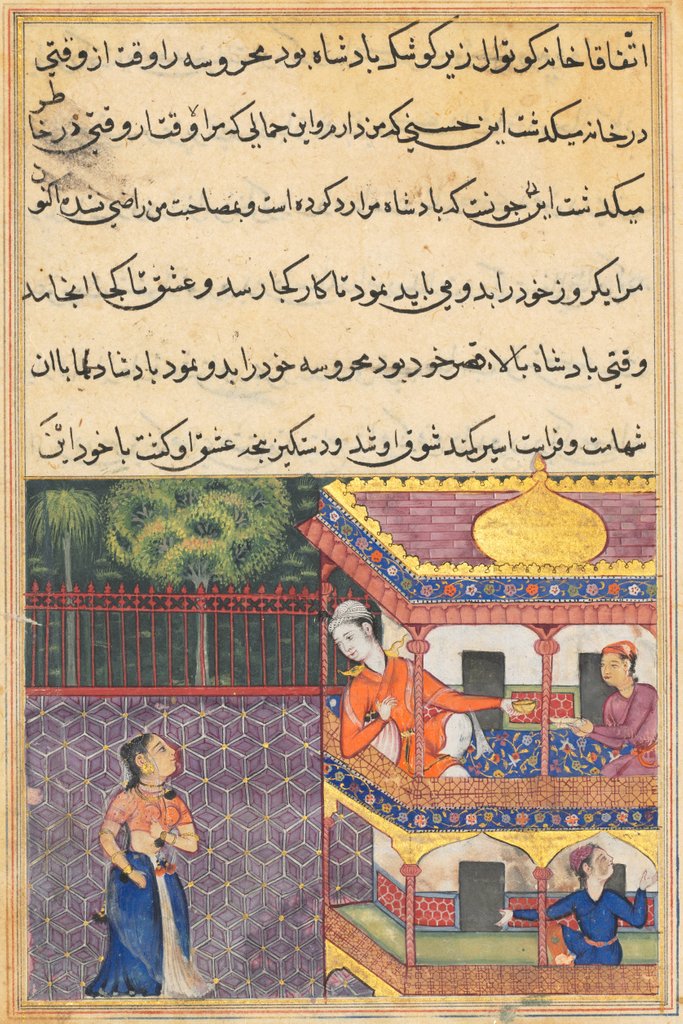 اتّفاقا خانه کوتوال زیر کوشک بادشاه بود محروسه را وقت از وقتی
در خانه میکدشت این حسنی که من دارم و این جمالی که مرا وقتا روقتی در خاطر
میکدشت این جونست که بادشاه مرا رد کوده است و بمصاحبت من راضی نشده اکنون
مرا یکروز خود را بدو می باید نمود تا کار کجا رسد و عشق تا کجا انجامد
وقتی بادشاه بالاء قصر خود بود محروسه خود را بدو نمود بادشاه با ان
شهامت و فراست اسیر کمند شوق او شد و دستکیر پنجه عشق او کشت با خود این